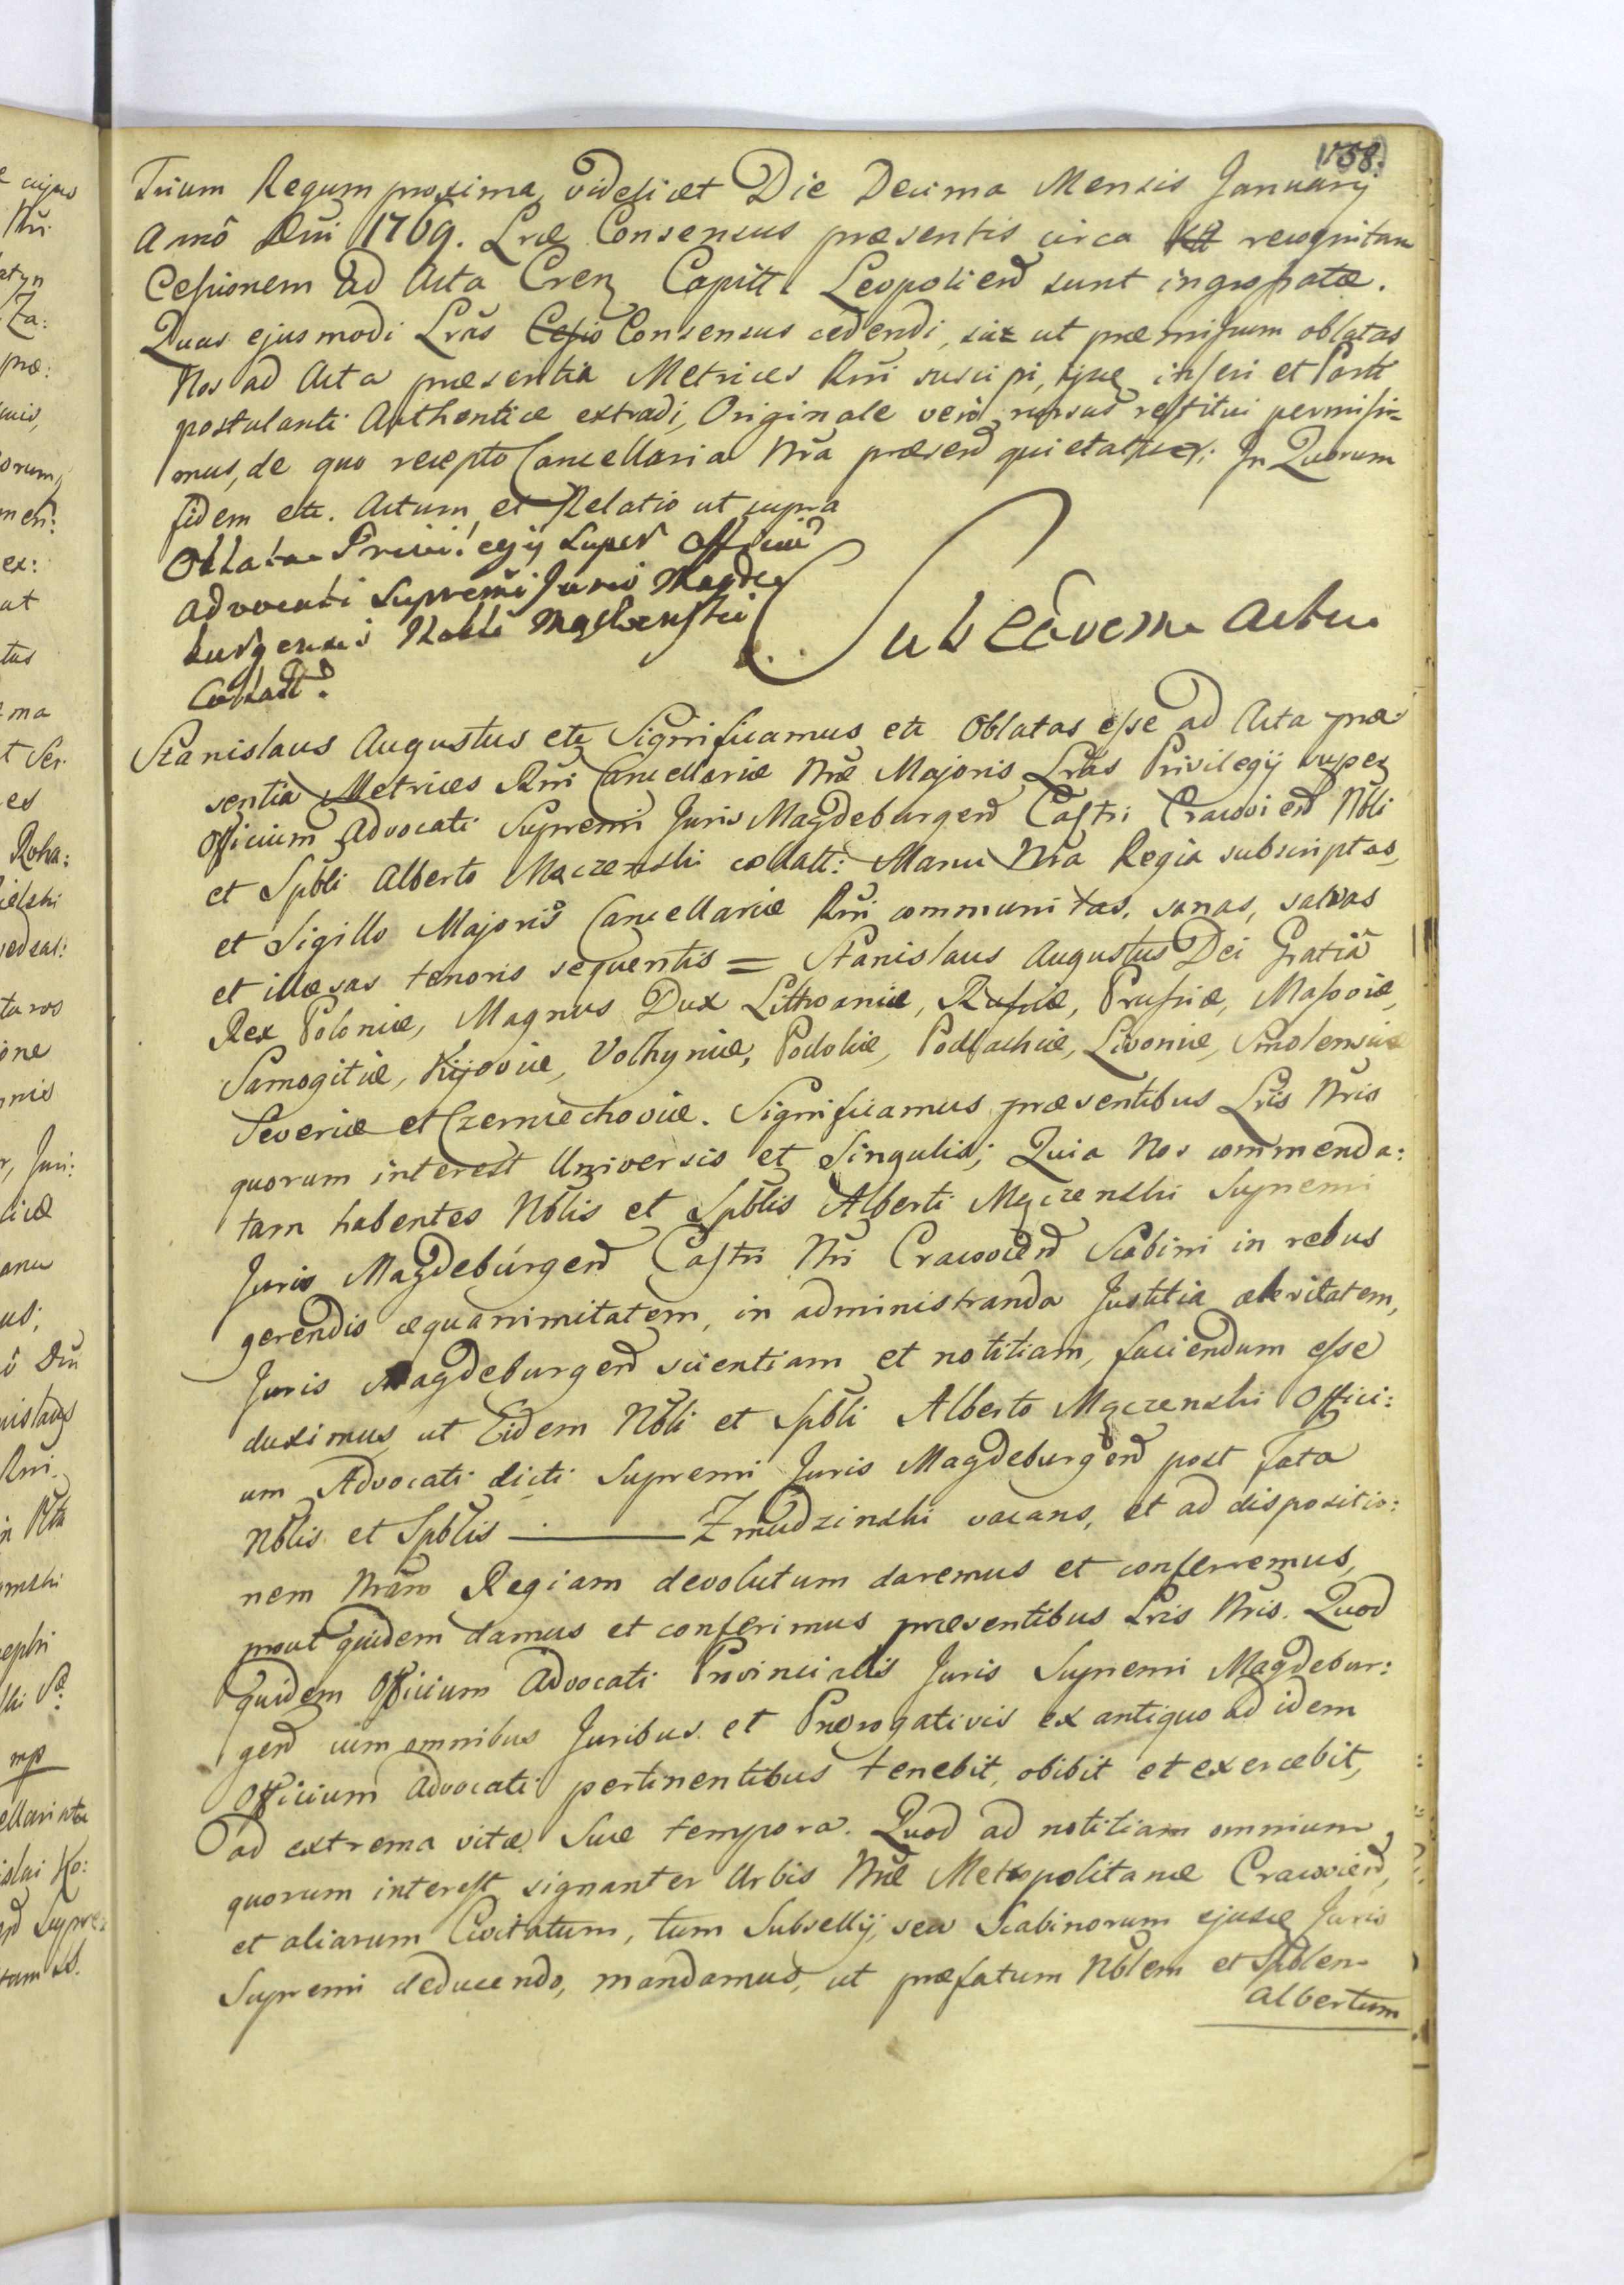 158.
Trium Regum proxima, videlicet Die Decima Mensis January
Annô Dni 1769. Lræ Consensus præsentis circa recognitam
Cessionem ad Acta Cren Capitl Leopolien sunt ingrossatæ.
Quas ejusmodi Lras Cessio Consensus cedendi, sic ut præmissum oblatas
Nos ad Acta præsentia Metrices Rni suscipi, ijsq inseri et Parti
postulanti Authentice extradi, Originale verò rursus restitui permisi=
mus, de quo recepto Cancellaria Nra præsen quietatur. In Quorum
fidem etc. Actum et Relatio ut supra
Oblata Privilegij super Officiu
Advocati Supremi Juris Magde
burgensis Nobli Mączenski
Collati.
Sub eadem Actu
Stanislaus Augustus etc Significamus etc Oblatas esse ad Acta præ
sentia Metrices Rni Cancellariæ Nræ Majoris Lras Privilegij super
Officium Advocati Supremi Juris Magdeburgen Castri Cracovien Nbli
et Spbli Alberto Mączenski collatt: Manu Nra Regia subscriptas
et Sigillo Majoris Cancellariæ Rni communitas, sanas, salvas
et illæsas tenoris sequentis = Stanislaus Augustus Dei Gratiâ
Rex Poloniæ, Magnus Dux Lithvaniæ, Russiæ, Prussiæ, Masoviæ,
Samogitiæ, Kijoviæ, Volhyniæ, Podoliæ, Podlachiæ, Livoniæ, Smolensciæ
Severiæ et Czerniechoviæ. Significamus præsentibus Lris Nris
quorum interest Universis et Singulis; Quia Nos commenda:
tam habentes Nblis et Spblis Alberti Mączenski Supremi
Juris Magdeburgen Castri Nri Cracovien Scabini in rebus
gerendis æquanimitatem, in administranda Justitia alevitatem,
Juris Magdeburgen scientiam et notitiam, faciendum esse
duximus, ut Eidem Nbli et Spbli Alberto Mączenski Offici:
um Advocati dicti Supremi Juris Magdeburgen post fata
Nblis et Spblis — Zmudzinski vacans, et ad dispositio:
nem Nram Regiam devolutum daremus et conferremus,
prout quidem damus et conferimus præsentibus Lris Nris. Quod
quidem Officium Advocati Provincialis Juris Supremi Magdebur:
gen cum omnibus Juribus et Prerogativis ex antiquo ad idem
Officium Advocati pertinentibus tenebit, obibit et exercebit,
ad extrema vitæ Suæ tempora. Quod ad notitiam omnium,
quorum interest signanter Urbis Nræ Metropolitanæ Cracovien,
et aliarum Civitatum, tum Subsellij, seu Scabinorum ejusd Juris
Supremi deducendo, mandamus, ut præfatum Nblem et Spblem
Albertum